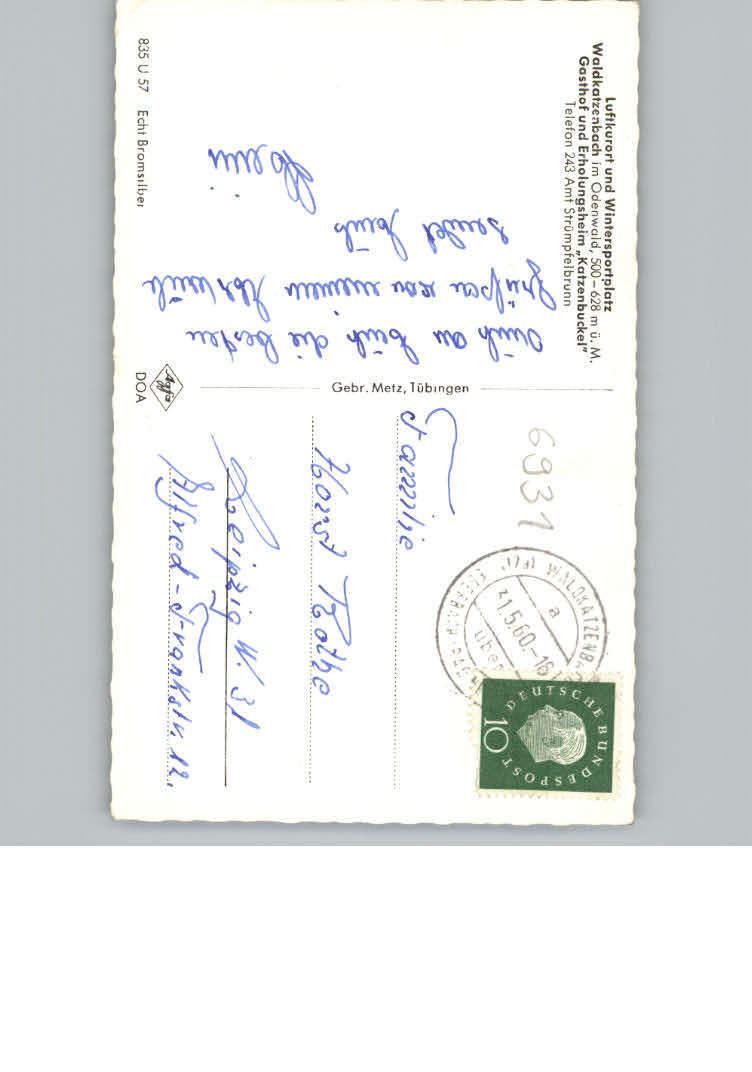 Luftkurort und Wintersportplatz
Waldkatzenbach im Odenwald, 500–628 m ü. M.
Gasthof und Erholungsheim „Katzenbuckel"
Telefon 243 Amt Strümpfelbrunn
Auch an Euch die besten
Grüße von meinem
sendet Euch
835 U 57 Echt Bromsilber
Gebr. Metz, Tübingen
Agfa
DOA
6931
(17a) WALDKATZENB
über
EBERBACH
a
31.5.60.-16
DEUTSCHE BUNDESPOST
10
Familie
Horst Rothe
Leipzig W. 31
Alfred-Frankstr. 12.